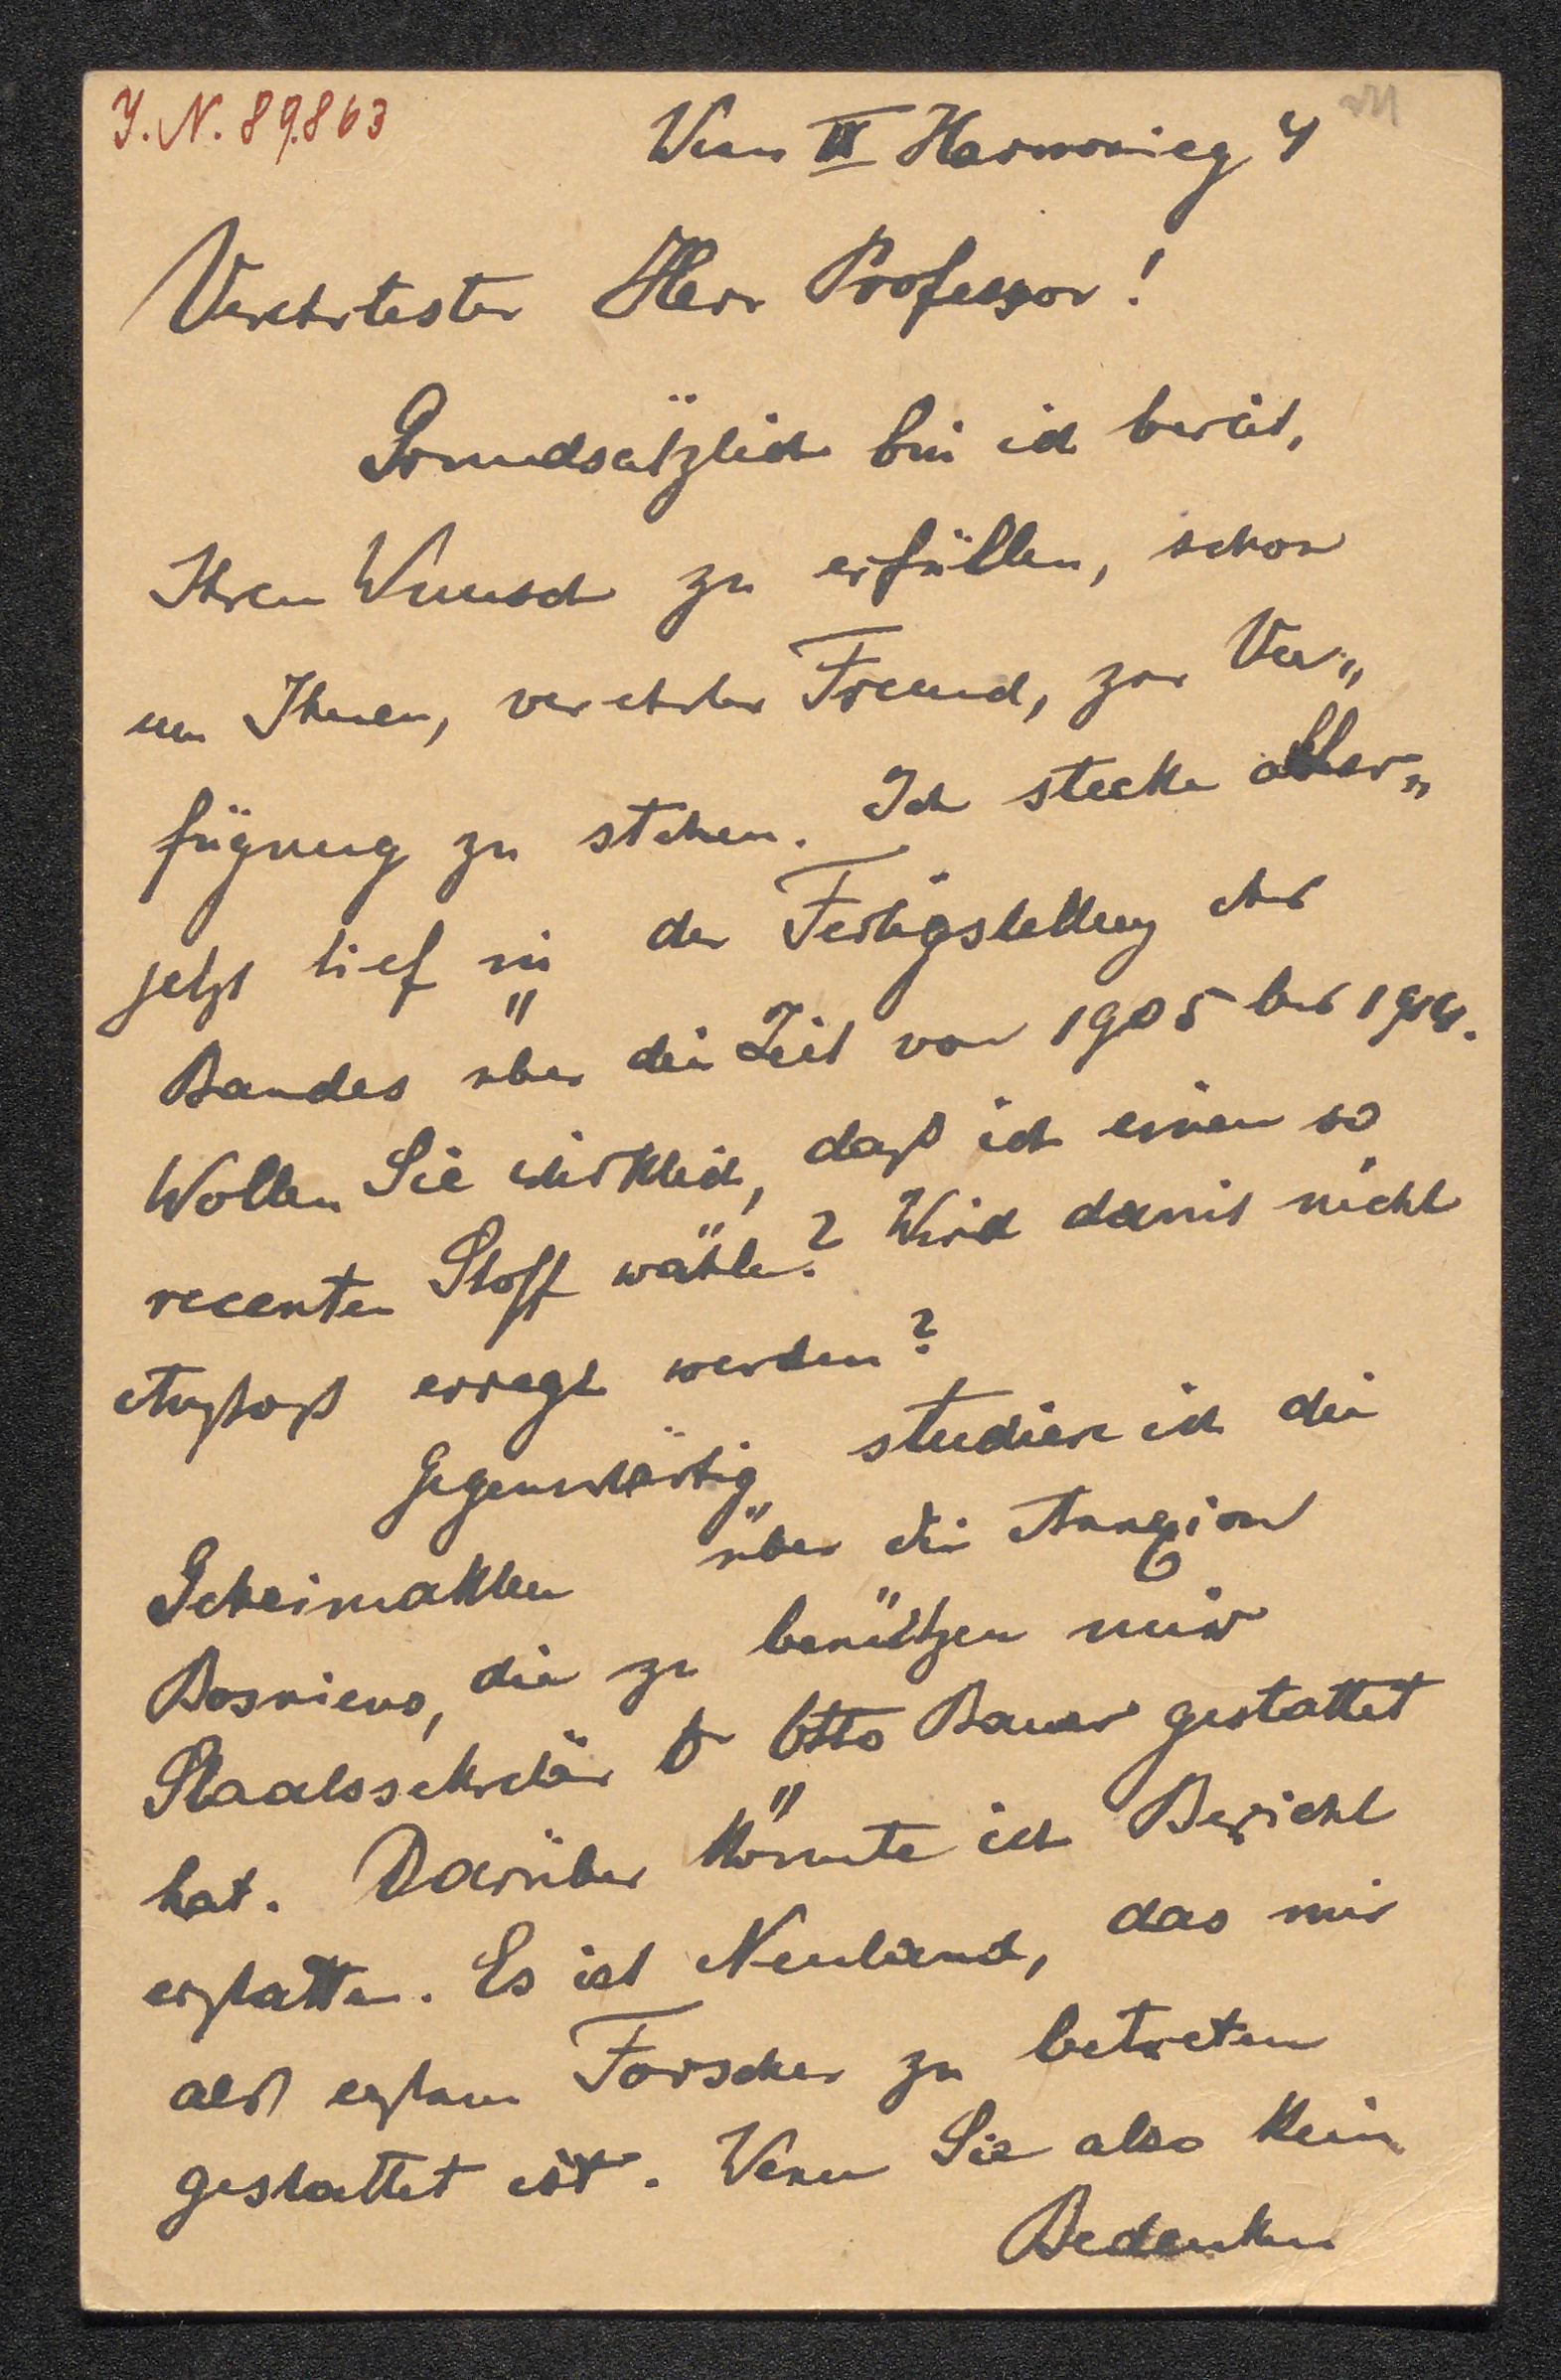 J. N. 89.863
Wien IX Harmonieg 4
Verehrtester Herr Professor!
Grundsätzlich bin ich bereit,
Ihren Wunsch zu erfüllen, schon
um Ihnen, verehrter Freund, zur Ver„
fügung zu stehen. Ich stecke aber„
jetzt tief in der Fertigstellung des
Bandes über die Zeit von 1905 bis 1914.
Wollen Sie wirklich, daß ich einen so
recenten Stoff wähle? Wird damit nicht
Anstoß erregt werden?
Gegenwärtig studiere ich die
Geheimakten über die Annexion
Bosniens, die zu benützen mir
Staatssekretär Dr Otto Bauer gestattet
hat. Darüber könnte ich Bericht
erstatten. Es ist Neuland, das mir
als erstem Forscher zu betreten
gestattet ist. Wenn Sie also kein
Bedenken